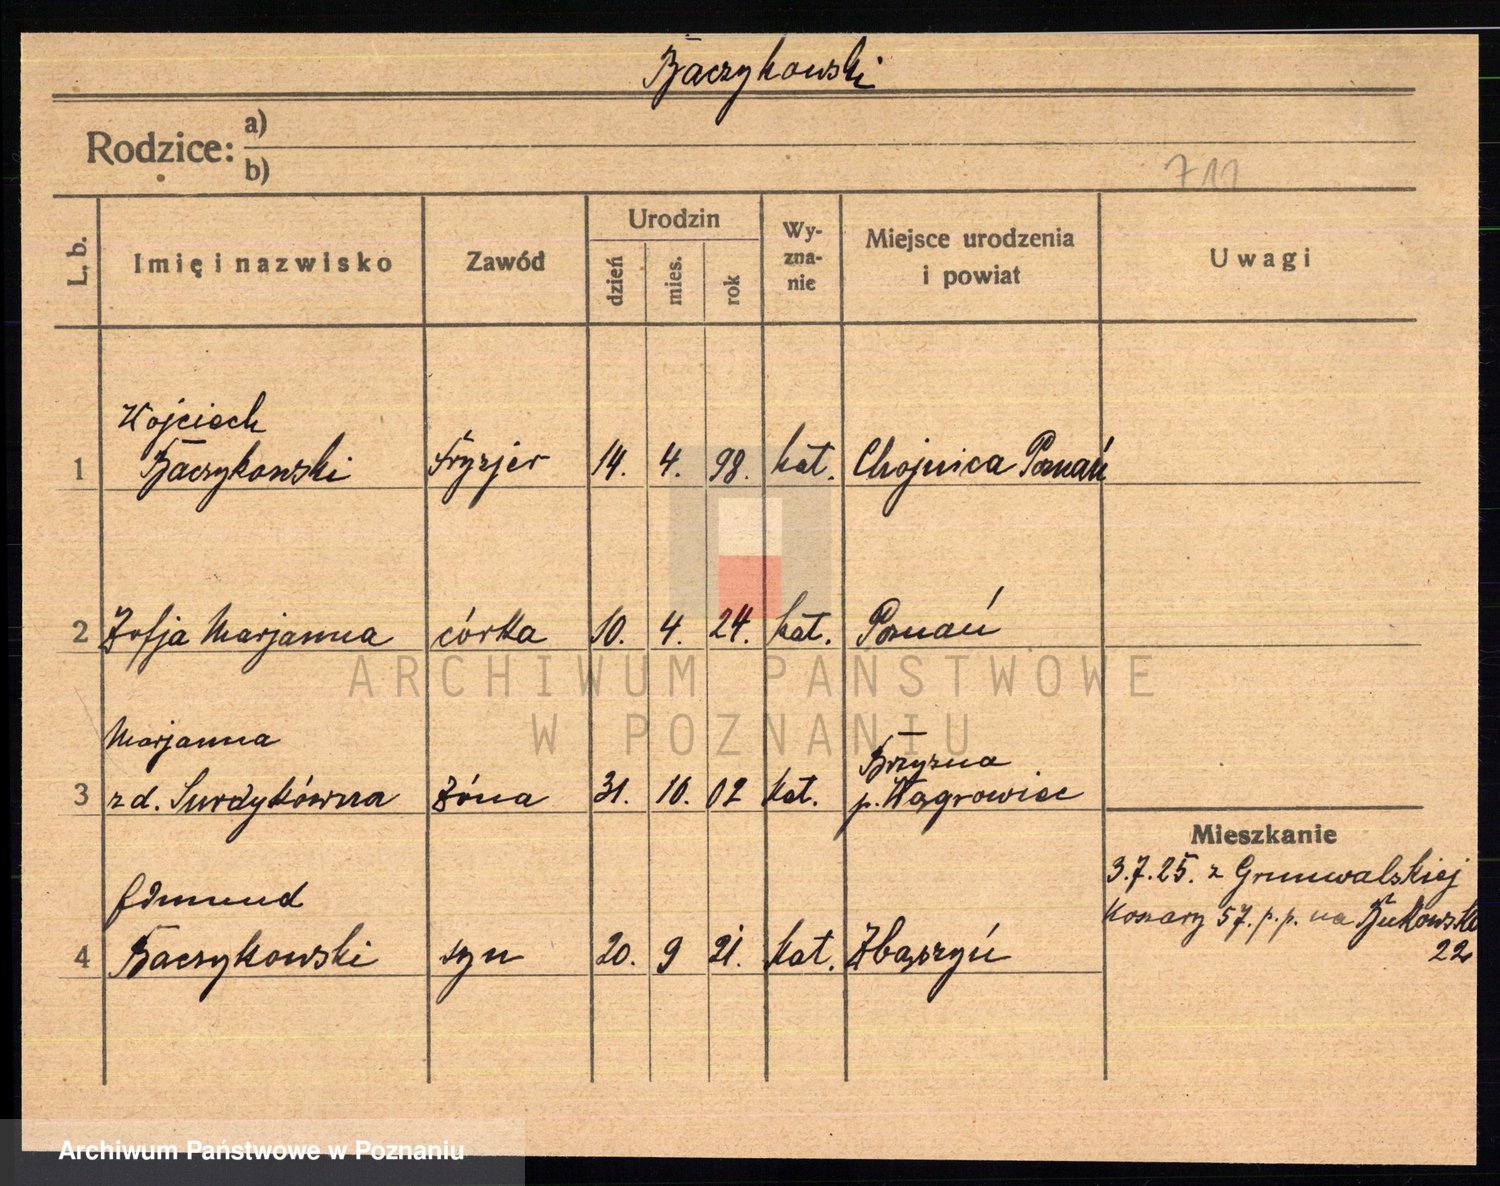 Bączykowski
Rodzice:
a)
b)
711
L. b.
Imię i nazwisko
Zawód
Urodzin
dzień
mies.
rok
Wy-
zna-
nie
Miejsce urodzenia
i powiat
Uwagi
Wojciech
1 Bączykowski fryzjer 14. 4. 98. kat. Chojnica Poznań
2 Zofja Marjanna córka 10. 4. 24. kat. Poznań
Marjanna
3 z d. Surdykówna żona 31. 10. 02 kat. p. Wągrowiec
Mieszkanie
3.7.25. z Grunwalskiej
Koszary 57. p.p. na Bukowską
22
Edmund
4 Bączykowski syn 20. 9 21. kat. Zbąszyń
ARCHIWUM PAŃSTWOWE
W POZNANIU
Archiwum Państwowe w Poznaniu